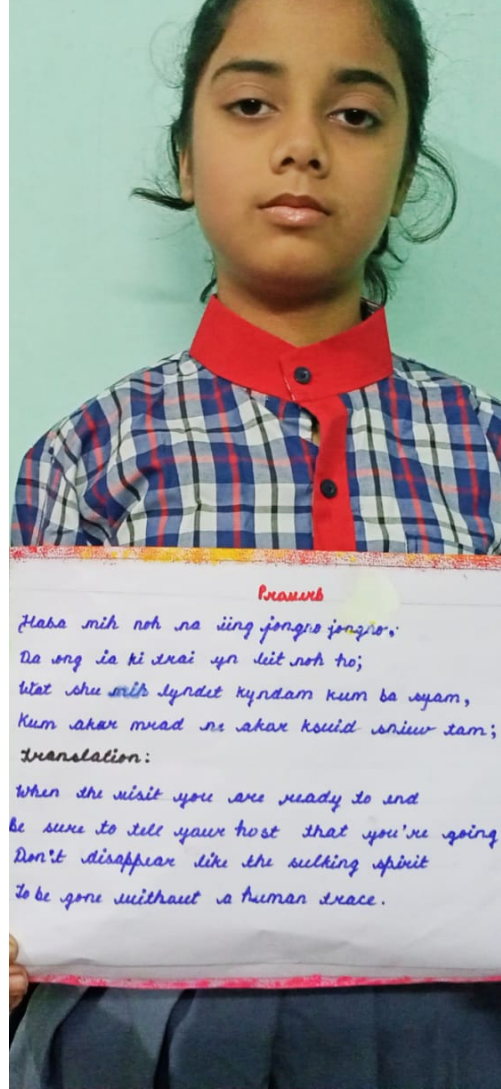 Proverb
Haba mih noh na iing jongno jongno,
Da ong ia ki trai yn leit noh ho;
Wat shu mih lyndet kyndam kum ba syam,
Kum akar mrad ne akar ksuid sniuw tam;
Translation:
When the visit you are ready to end
Be sure to tell your host that you're going
Don't disappear like the sulking spirit
To be gone without a human trace.